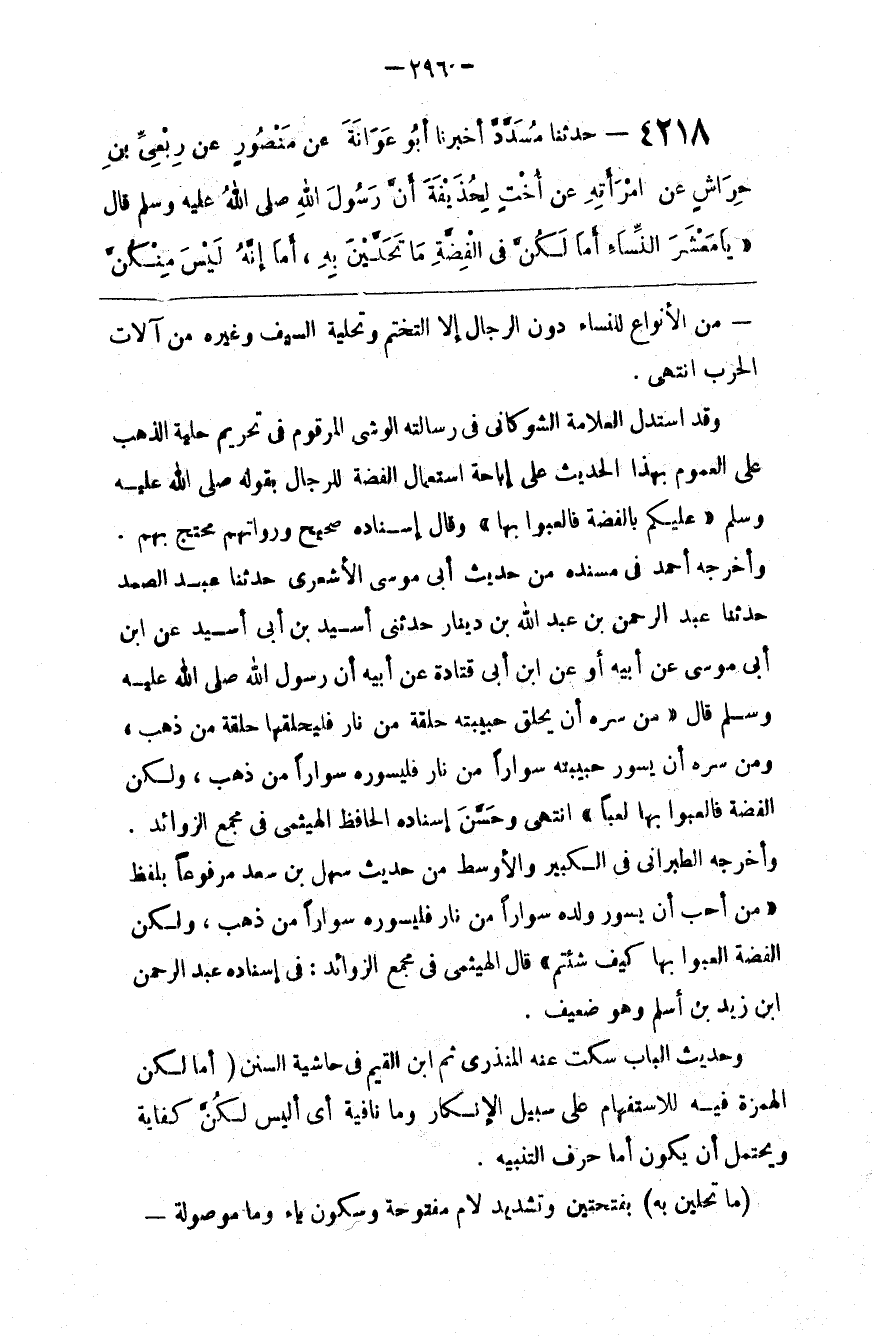 — ٢٩٦ —
٤٢١٨ — حدثنا مُسَدَّدٌ أخبرنا أَبُو عَوَانَةَ عن مَنْصُورٍ عن رِبْعِيِّ بنِ
حِرَاشٍ عن امْرَأَتِهِ عن أُخْتٍ لِحُذَيْفَةَ أَنَّ رَسُولَ اللهِ صلى اللهُ عليه وسلم قال
« يَامَعْشَرَ النِّسَاءِ أَمَا لَكُنَّ فى الْفِضَّةِ مَا تَحَلَّيْنَ بِهِ ، أَمَا إِنَّهُ لَيْسَ مِنْكُنَّ
— من الأنواع للنساء دون الرجال إلا التختم وتحلية السيف وغيره من آلات
الحرب انتهى .
وقد استدل العلامة الشوكانى فى رسالته الوشى المرقوم فى تحريم حلية الذهب
على العموم بهذا الحديث على إباحة استعمال الفضة للرجال بقوله صلى الله عليه
وسلم « عليكم بالفضة فالعبوا بها » وقال إسناده صحيح ورواتهم محتج بهم .
وأخرجه أحمد فى مسنده من حديث أبى موسى الأشعرى حدثنا عبد الصمد
حدثنا عبد الرحمن بن عبد الله بن دينار حدثنى أسيد بن أبى أسيد عن ابن
أبى موسى عن أبيه أو عن ابن أبى قتادة عن أبيه أن رسول الله صلى الله عليه
وسلم قال « من سره أن يحلق حبيبته حلقة من نار فليحلقها حلقة من ذهب ،
ومن سره أن يسور حبيبته سواراً من نار فليسوره سواراً من ذهب ، ولكن
الفضة فالعبوا بها لعباً » انتهى وحَسَّنَ إسناده الحافظ الهيثمى فى مجمع الزوائد .
وأخرجه الطبرانى فى الكبير والأوسط من حديث سهل بن سعد مرفوعاً بلفظ
« من أحب أن يسور ولده سواراً من نار فليسوره سواراً من ذهب ، ولكن
الفضة العبوا بها كيف شئتم » قال الهيثمى فى مجمع الزوائد : فى إسناده عبد الرحمن
ابن زيد بن أسلم وهو ضعيف .
وحديث الباب سكت عنه المنذرى ثم ابن القيم فى حاشية السنن ( أما لكن
الهمزة فيه للاستفهام على سبيل الإنكار وما نافية أى أليس لكُنَّ كفاية
ويحتمل أن يكون أما حرف التنبيه .
(ما تحلين به) بفتحتين وتشديد لام مفتوحة وسكون ياء وما موصولة —